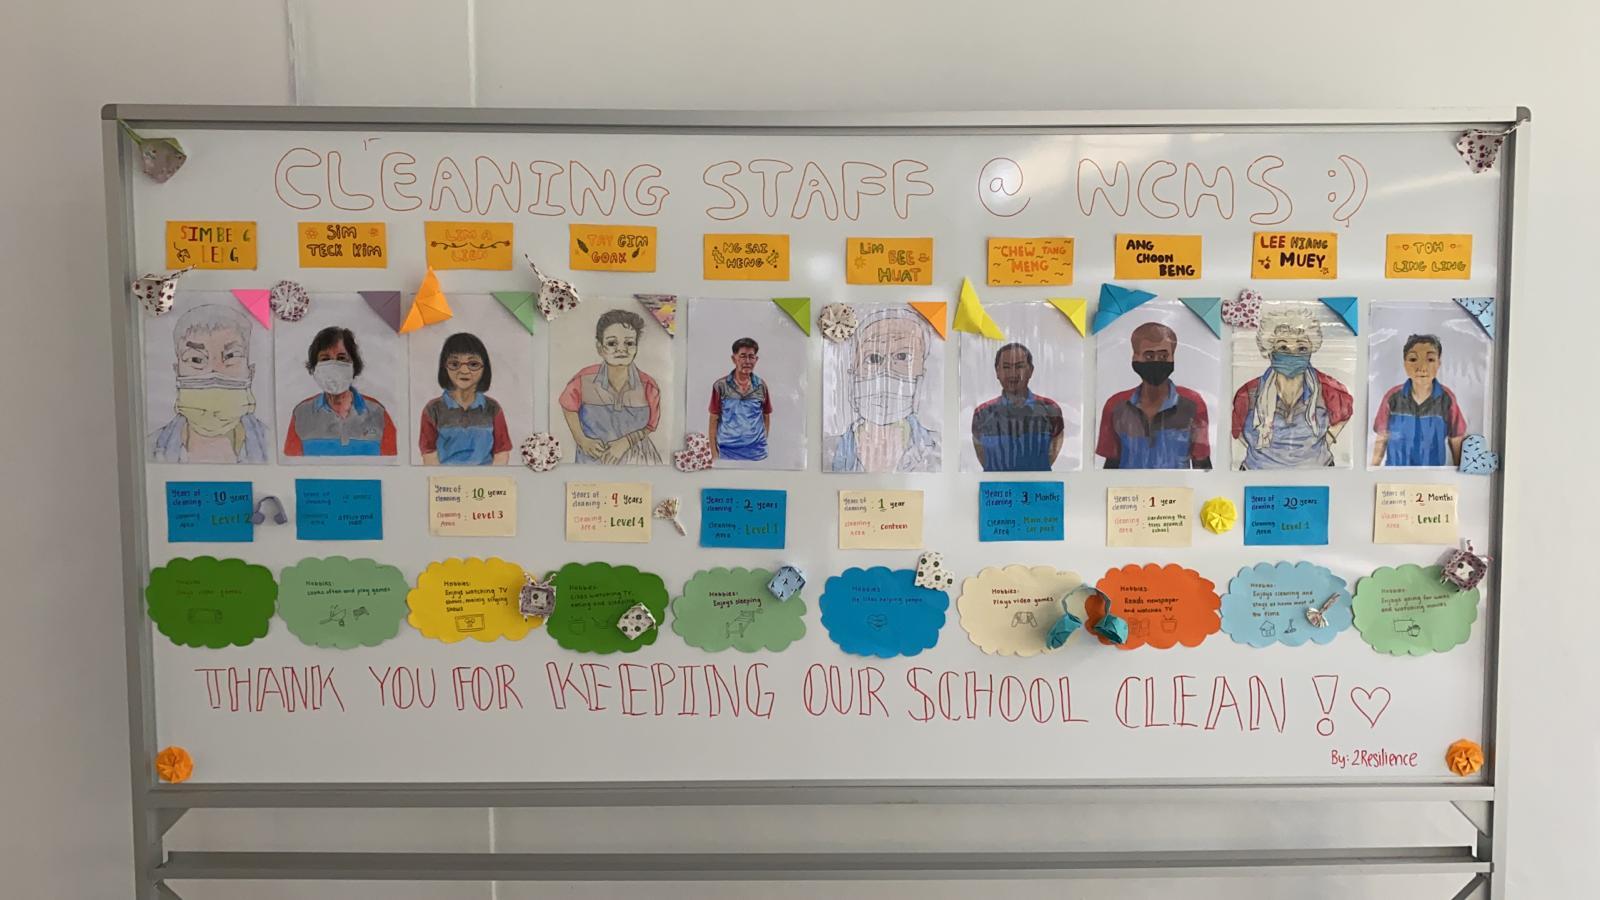 CLEANING STAFF @ NCHS :)
SIM BE G LENG
SIM TECK KIM
LIM A LIEN
TAY GIM GOAK
NG SAI HENG
LIM BEE HUAT
CHEW TANG MENG
ANG CHOON BENG
LEE HIANG MUEY
TOH LING LING
Years of cleaning : 10 years
Cleaning Area : Level 2
Years of cleaning :
Cleaning Area : office and
Years of cleaning : 10 years
Cleaning Area : Level 3
Years of cleaning : 9 Years
Cleaning Area : Level 4
Years of cleaning : 2 years
Cleaning Area : Level 1
Years of cleaning : 1 year
Cleaning Area : Canteen
Years of cleaning : 3 Months
Cleaning Area : Main Gate Car park
Years of cleaning : 1 year
Cleaning Area : Gardening the trees around school
Years of cleaning : 20 years
Cleaning Area : Level 1
Years of cleaning : 2 Months
Cleaning Area : Level 1
Hobbies:
Plays video games
Hobbies:
Cooks often and play games
Hobbies:
Enjoys watching TV
shows, mainly singing
shows
Hobbies:
Likes watching TV,
eating and sleeping
Hobbies:
Enjoys sleeping
Hobbies:
He likes helping people
Hobbies:
Plays video games
Hobbies:
Reads newspaper
and watches TV
Hobbies:
Enjoys cleaning and
stays at home most of
the times
Hobbies:
Enjoys going for walks
and watching movies
THANK YOU FOR KEEPING OUR SCHOOL CLEAN! ♡
By: 2Resilience